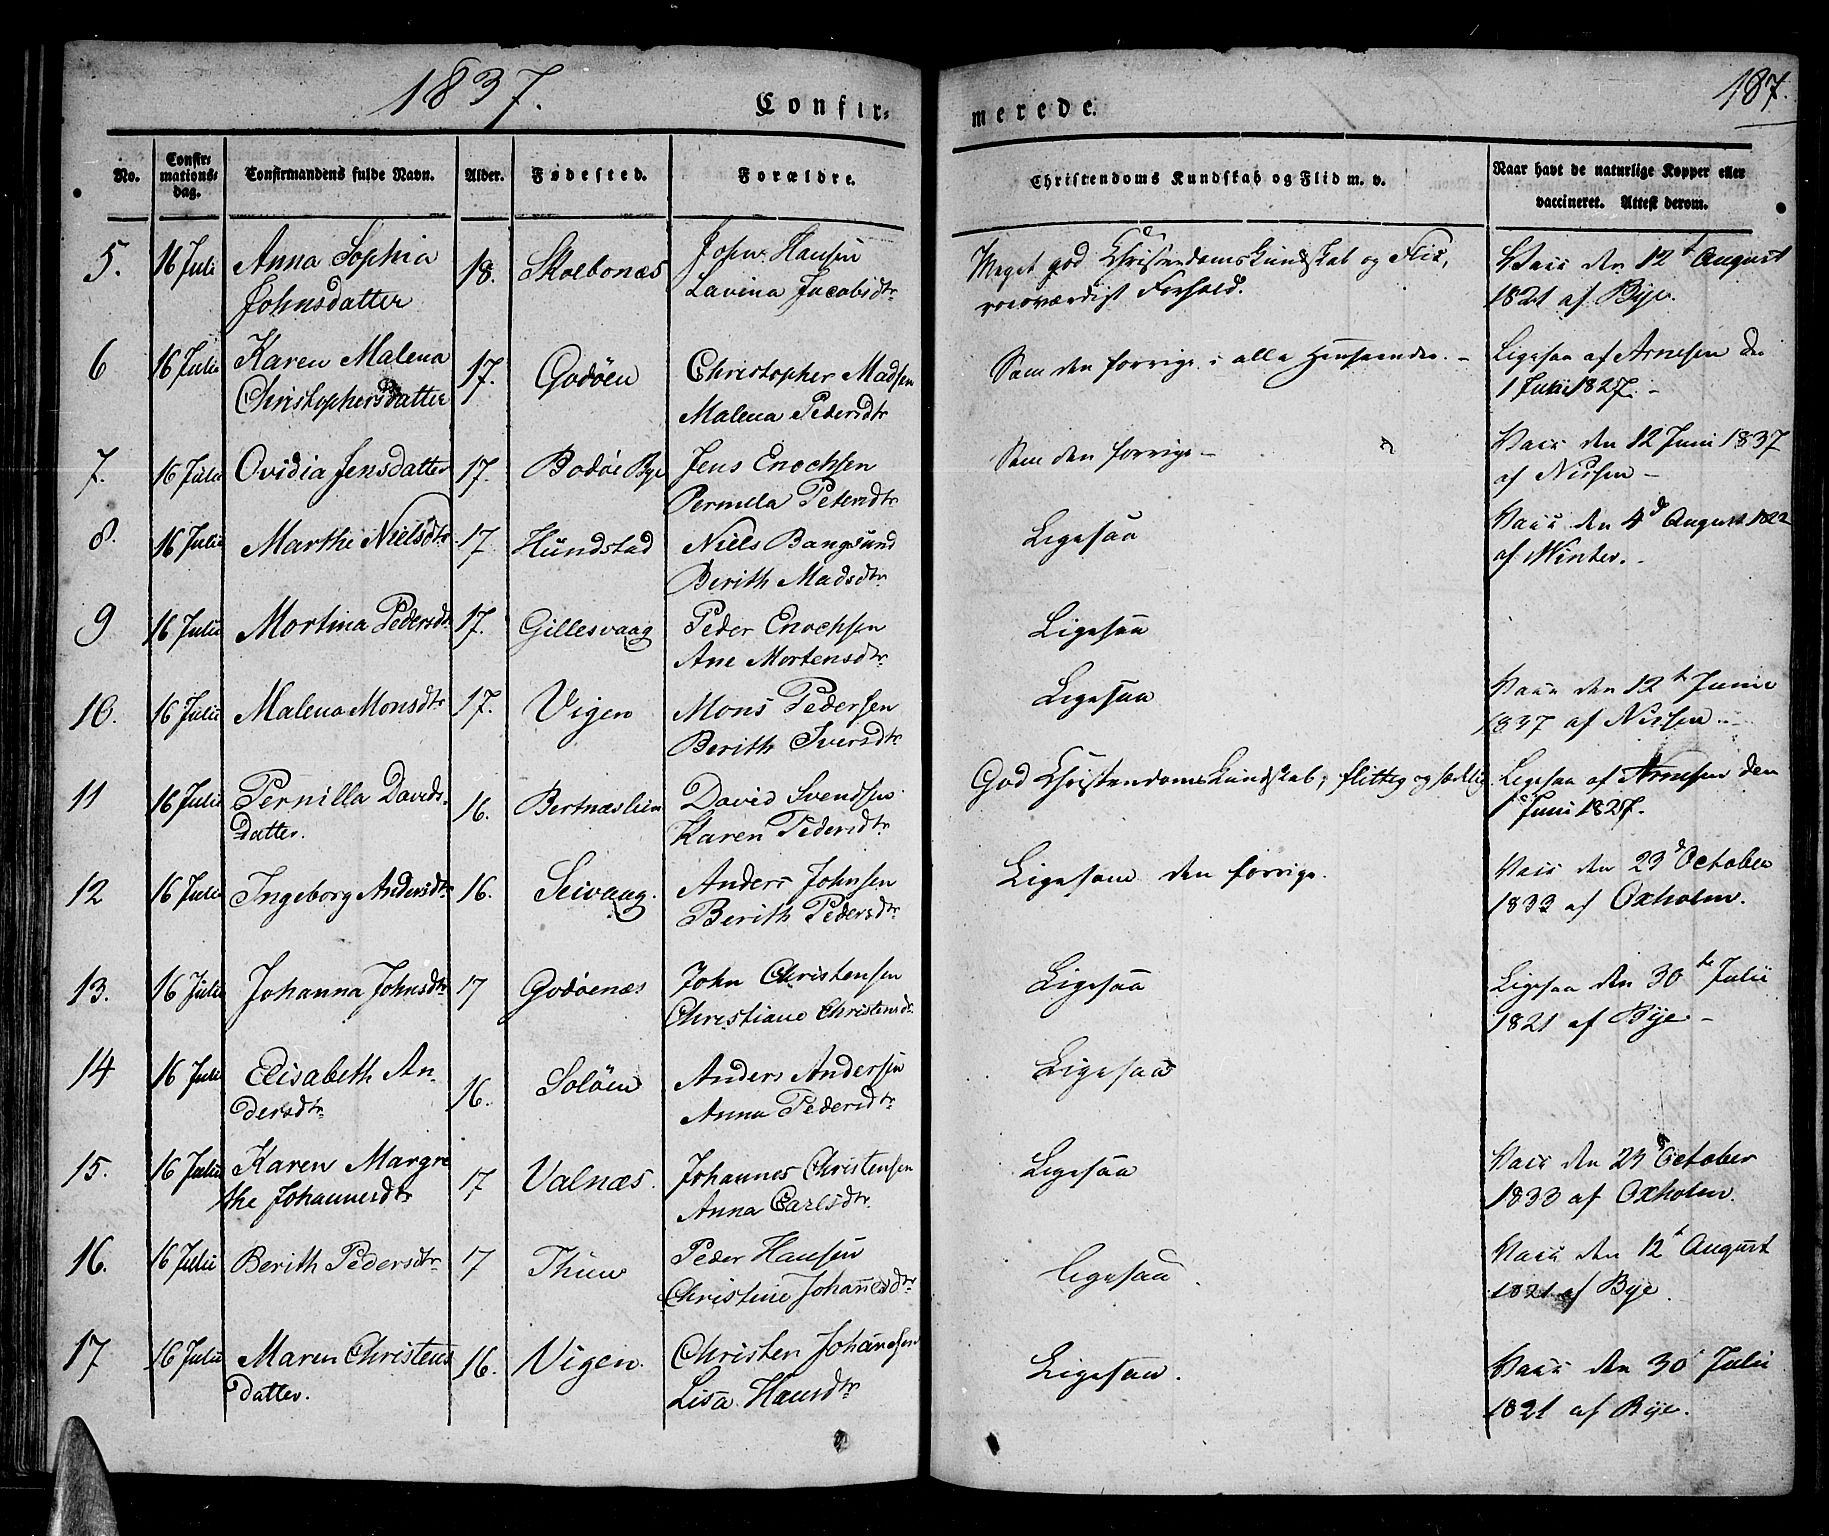 1837.
Confir-
merede.
187.
No.
Confir-
mations-
dag.
Confirmandens fulde Navn.
Alder.
Fødested.
Forældre.
Christendoms Kundskab og Flid m. v.
Naar havt de naturlige Kopper eller
vaccineret. Attest derom.
5. 16 Juli Anna Sophia 18. Skolbonæs John Hansen Meget god Christendomskundskab og Flid, Vacc den 12te August
Johnsdatter Lavina Jacobsdtr roesværdigt Forhold. 1821 af Bye.
6 16 Julii Karen Malena 17. Godøen Christopher Madsen Som den forrige i alle Henseender. - Ligesaa af Arnesen den
Christophersdatter Malena Pedersdtr 1 Juni 1827. -
7. 16 Julii Ovidia Jensdatter 17. Bodøe Bye Jens Enochsen Som den forrige - Vacc den 12 Juni 1837
Pernilla Petersdtr af Nissen -
8. 16 Julii Marthe Nielsdtr 17 Hundstad Niels Bangsund Ligesaa Vacc den 4de August 1822
Berith Madsdtr af Winter. -
9 16 Julii Mortina Pedersdtr 17. Gillesvaag Peder Enochsen Ligesaa
Ane Mortensdtr
10. 16 Julii Malena Monsdtr 17. Vigen Mons Pedersen Ligesaa Vacc den 12te Junii
Berith Iversdtr 1837 af Nissen
11 16 Julii Pernilla Davids- 16. Bertnæsleira David Svendsen God Christendomskundskab, flittig og sædelig Ligesaa af Arnesen den
datter. Karen Pedersdtr 1 Juni 1827.
12 16 Julii Ingeborg Andersdtr 16. Seivaag. Anders Johnsen Ligesom den forrige. Vacc den 23de October
Berith Pedersdtr 1833 af Oxholm.
13. 16 Julii Johanna Johnsdtr 17 Godøenæs John Christensen Ligesaa Ligesaa den 30te Julii
Christiane Christensdr. 1821 af Bye -
14 16 Juli Elisabeth An- 16. Soløen Anders Andersen Ligesaa
dersdtr Anna Pedersdtr
15. 16 Julii Karen Margre 17 Valnæs. Johannes Christensen Ligesaa Vacc den 23de October
the Johannesdtr Anna Carlsdtr. 1833 af Oxholm.
16. 16 Julii Berith Pedersdtr 17 Thuv Peder Hansen Ligesaa Vacc den 12te August
Christine Johannesdtr 1821 af Bye
17 16 Julii Maren Christens 16. Vigen. Christen Johannesen Ligesaa. Vacc den 30te Julii
datter. Lisa Hansdtr 1821 af Bye.